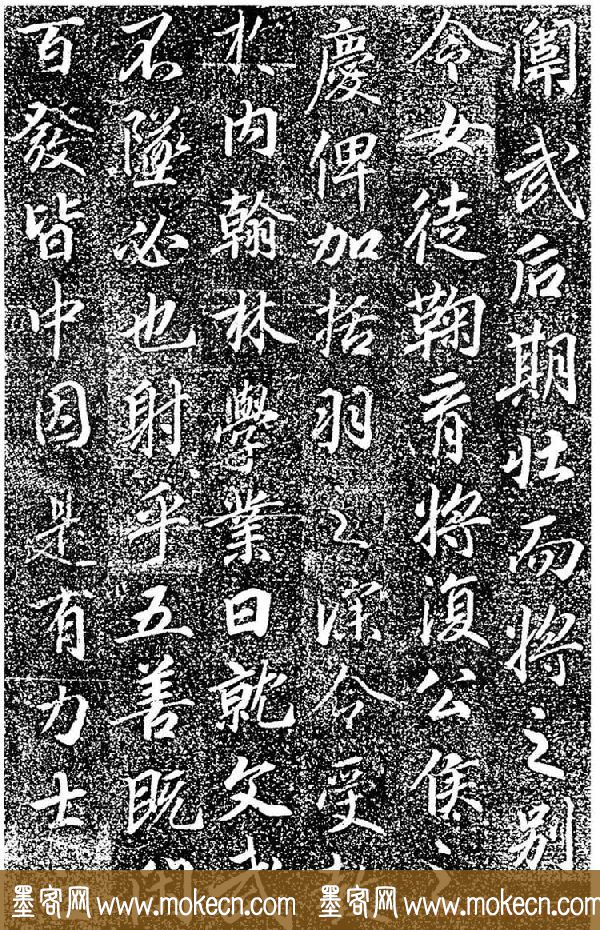 闈武后期壮而将之别
令女徒鞠育将復公侯之
慶俾加括羽之深令受
於内翰林學業日就文武
不墜必也射乎五善既閑
百發皆中因是有力士
墨客网 www.mokecn.com 墨客网 www.mokecn.com